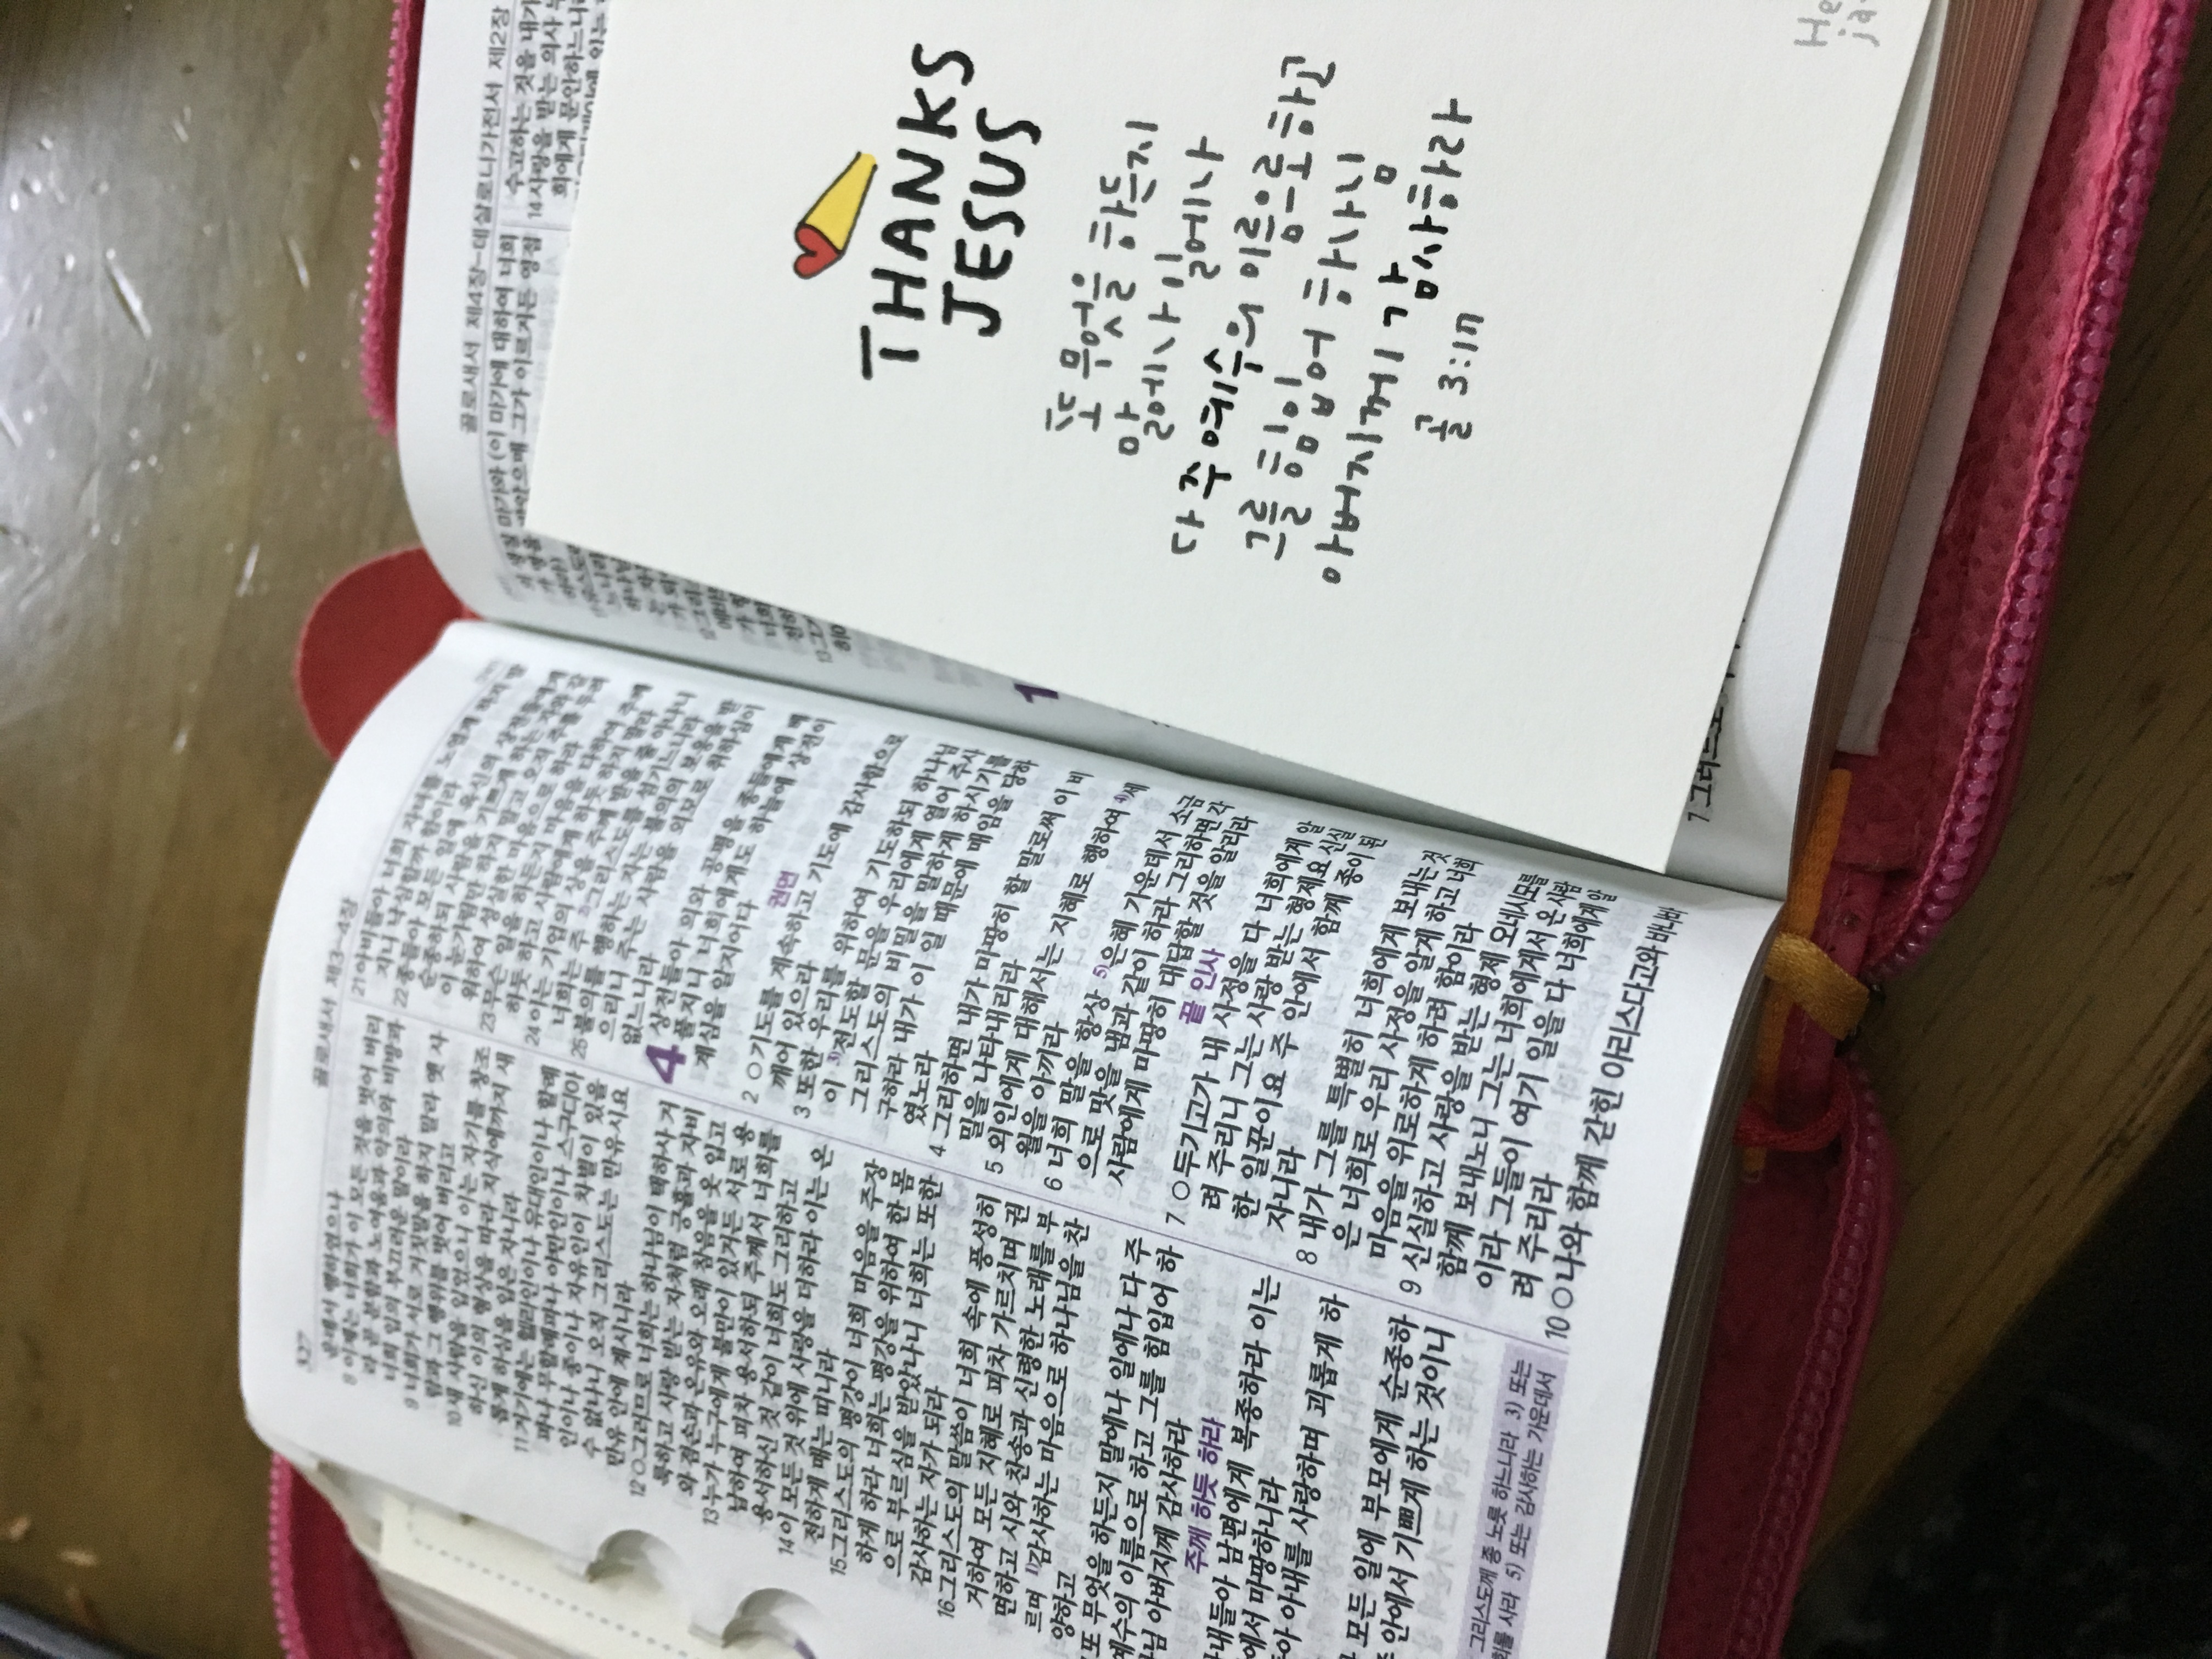 527
골로새서 제3-4장
8 이제는 너희가 이 모든 것을 벗어 버리
9 너희가 서로 거짓말을 하지 말라 옛 사
람과 그 행위를 벗어 버리고
10 새 사람을 입었으니 이는 자기를 창조
하신 이의 형상을 따라 지식에까지 새
롭게 하심을 입은 자니라
11 거기에는 헬라인이나 유대인이나 할례
파나 무할례파나 야만인이나 스구디아
인이나 종이나 자유인이 차별이 있을
수 없나니 오직 그리스도는 만유시요
만유 안에 계시니라
12 ○그러므로 너희는 하나님이 택하사 거
룩하고 사랑 받는 자처럼 긍휼과 자비
와 겸손과 온유와 오래 참음을 옷 입고
13 누가 누구에게 불만이 있거든 서로 용
납하여 피차 용서하되 주께서 너희를
용서하신 것 같이 너희도 그리하고
14 이 모든 것 위에 사랑을 더하라 이는 온
전하게 매는 띠니라
15 그리스도의 평강이 너희 마음을 주장
하게 하라 너희는 평강을 위하여 한 몸
으로 부르심을 받았나니 너희는 또한
감사하는 자가 되라
16 그리스도의 말씀이 너희 속에 풍성히
거하여 모든 지혜로 피차 가르치며 권
면하고 시와 찬송과 신령한 노래를 부
르며 1)감사하는 마음으로 하나님을 찬
양하고
또 무엇을 하든지 말에나 일에나 다 주
예수의 이름으로 하고 그를 힘입어 하
님 아버지께 감사하라
주께 하듯 하라
내들아 남편에게 복종하라 이는
에서 마땅하니라
아 아내를 사랑하며 괴롭게 하
모든 일에 부모에게 순종하
안에서 기쁘게 하는 것이니
그리스도께 종 노릇 하느니라 3) 또는
회를 사라 5) 또는 감사하는 가운데서
21 아비들아 너희 자녀를 노엽게 하지 말
지니 낙심할까 함이라
22 종들아 모든 일에 육신의 상전들에게
순종하되 사람을 기쁘게 하는 자와 같
이 눈가림만 하지 말고 오직 주를 두려
워하여 성실한 마음으로 하라
23 무슨 일을 하든지 마음을 다하여 주께
하듯 하고 사람에게 하듯 하지 말라
24 이는 기업의 상을 주께 받을 줄 아나니
너희는 주 2)그리스도를 섬기느니라
25 불의를 행하는 자는 불의의 보응을 받
으리니 주는 사람을 외모로 취하심이
없느니라
4 상전들아 의와 공평을 종들에게 베
풀지니 너희에게도 하늘에 상전이
계심을 알지어다
권면
2 ○기도를 계속하고 기도에 감사함으로
깨어 있으라
3 또한 우리를 위하여 기도하되 하나님
이 3)전도할 문을 우리에게 열어 주사
그리스도의 비밀을 말하게 하시기를
구하라 내가 이 일 때문에 매임을 당하
였노라
4 그리하면 내가 마땅히 할 말로써 이 비
밀을 나타내리라
5 외인에게 대해서는 지혜로 행하여 4)세
월을 아끼라
6 너희 말을 항상 5)은혜 가운데서 소금
으로 맛을 냄과 같이 하라 그리하면 각
사람에게 마땅히 대답할 것을 알리라
끝 인사
7 ○두기고가 내 사정을 다 너희에게 알
려 주리니 그는 사랑 받는 형제요 신실
한 일꾼이요 주 안에서 함께 종이 된
자니라
8 내가 그를 특별히 너희에게 보내는 것
은 너희로 우리 사정을 알게 하고 너희
마음을 위로하게 하려 함이라
9 신실하고 사랑을 받는 형제 오네시모를
함께 보내노니 그는 너희에게서 온 사람
이라 그들이 여기 일을 다 너희에게 알
려 주리라
10 ○나와 함께 갇힌 아리스다고와 바나바
골로새서 제4장-데살로니가전서 제2장
마가와 (이 마가에 대하여 너희
그가 이르거든 영접
수고하는 것을 내가
14 사랑을 받는 의사 누
1
THANKS
JESUS
또 무엇을 하든지
말에나 일에나
다 주 예수의 이름으로 하고
그를 힘입어 하나님
아버지께 감사하라
골 3:17